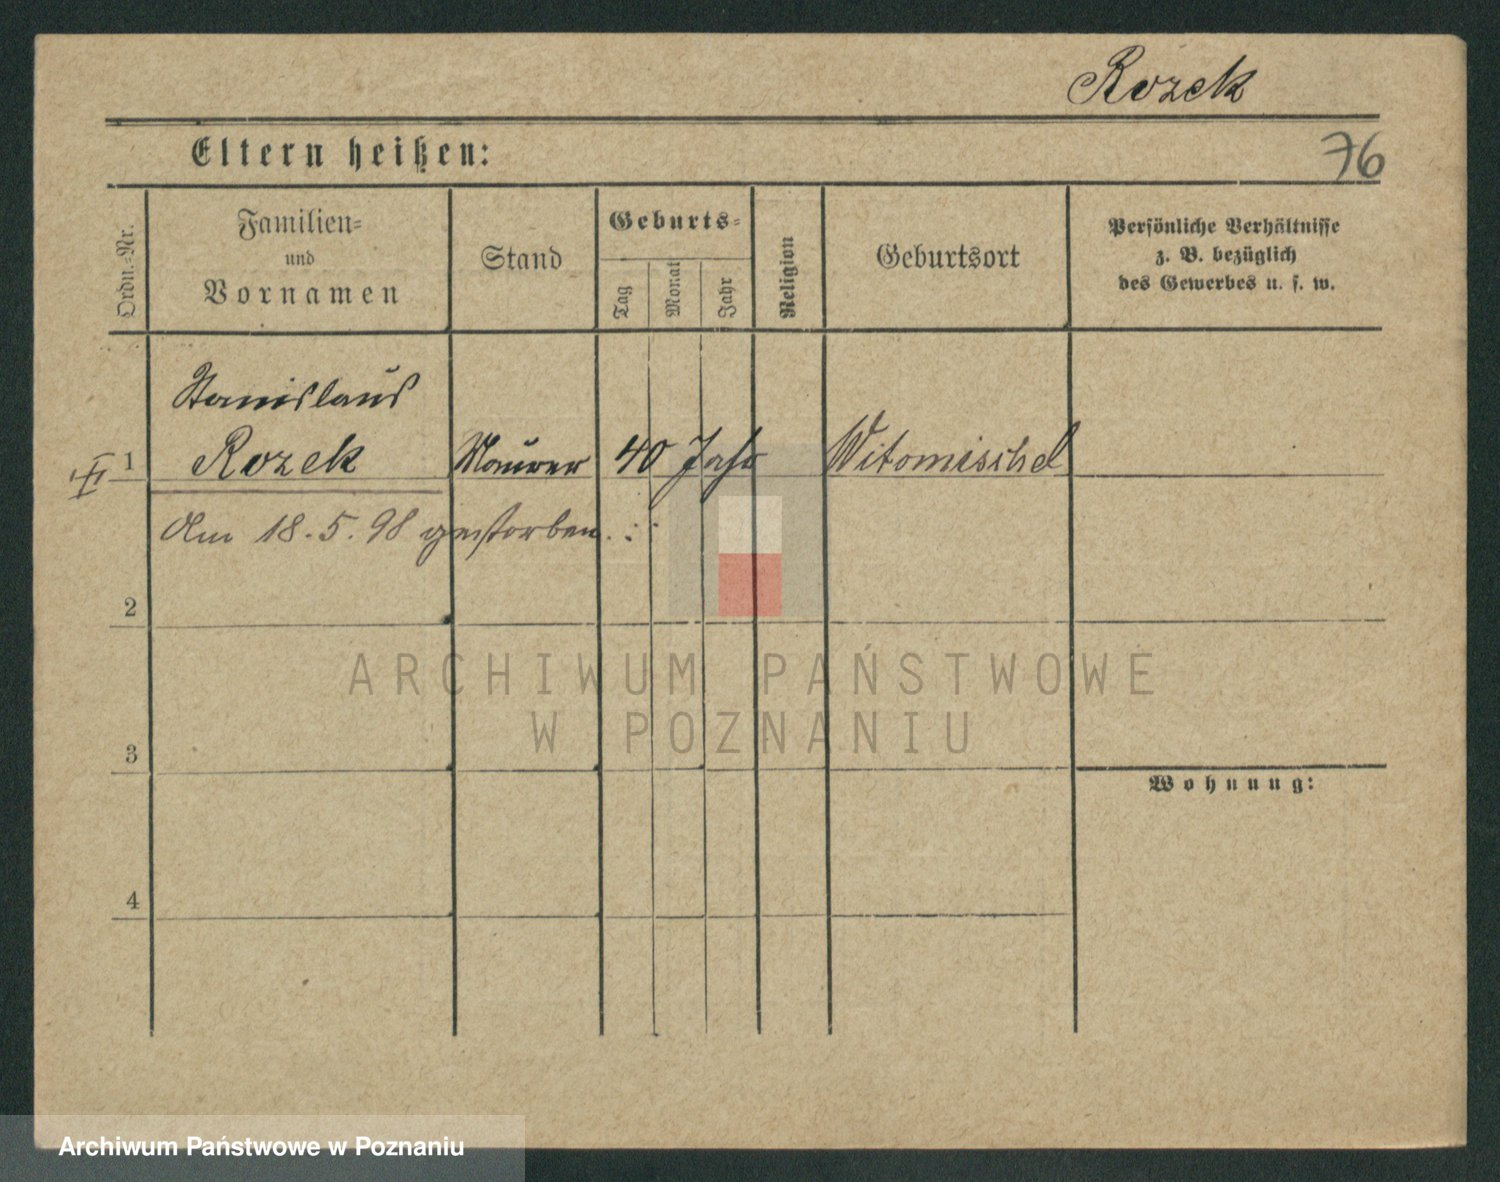 Rozek
Eltern heißen:
76
Ordn.-Nr.
Familien-
und
Vornamen
Stand
Geburts-
Tag
Monat
Jahr
Religion
Geburtsort
Persönliche Verhältnisse
z. B. bezüglich
des Gewerbes u. s. w.
Stanislaus
1 Rozek Maurer 40 Jahr Witomischel
Am 18.5.98 gestorben.
2
ARCHIWUM PAŃSTWOWE
W POZNANIU
3
Wohnung:
4
Archiwum Państwowe w Poznaniu